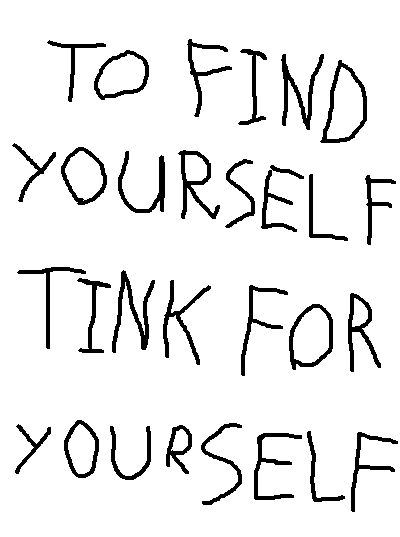 TO FIND
YOURSELF
TINK FOR
YOURSELF